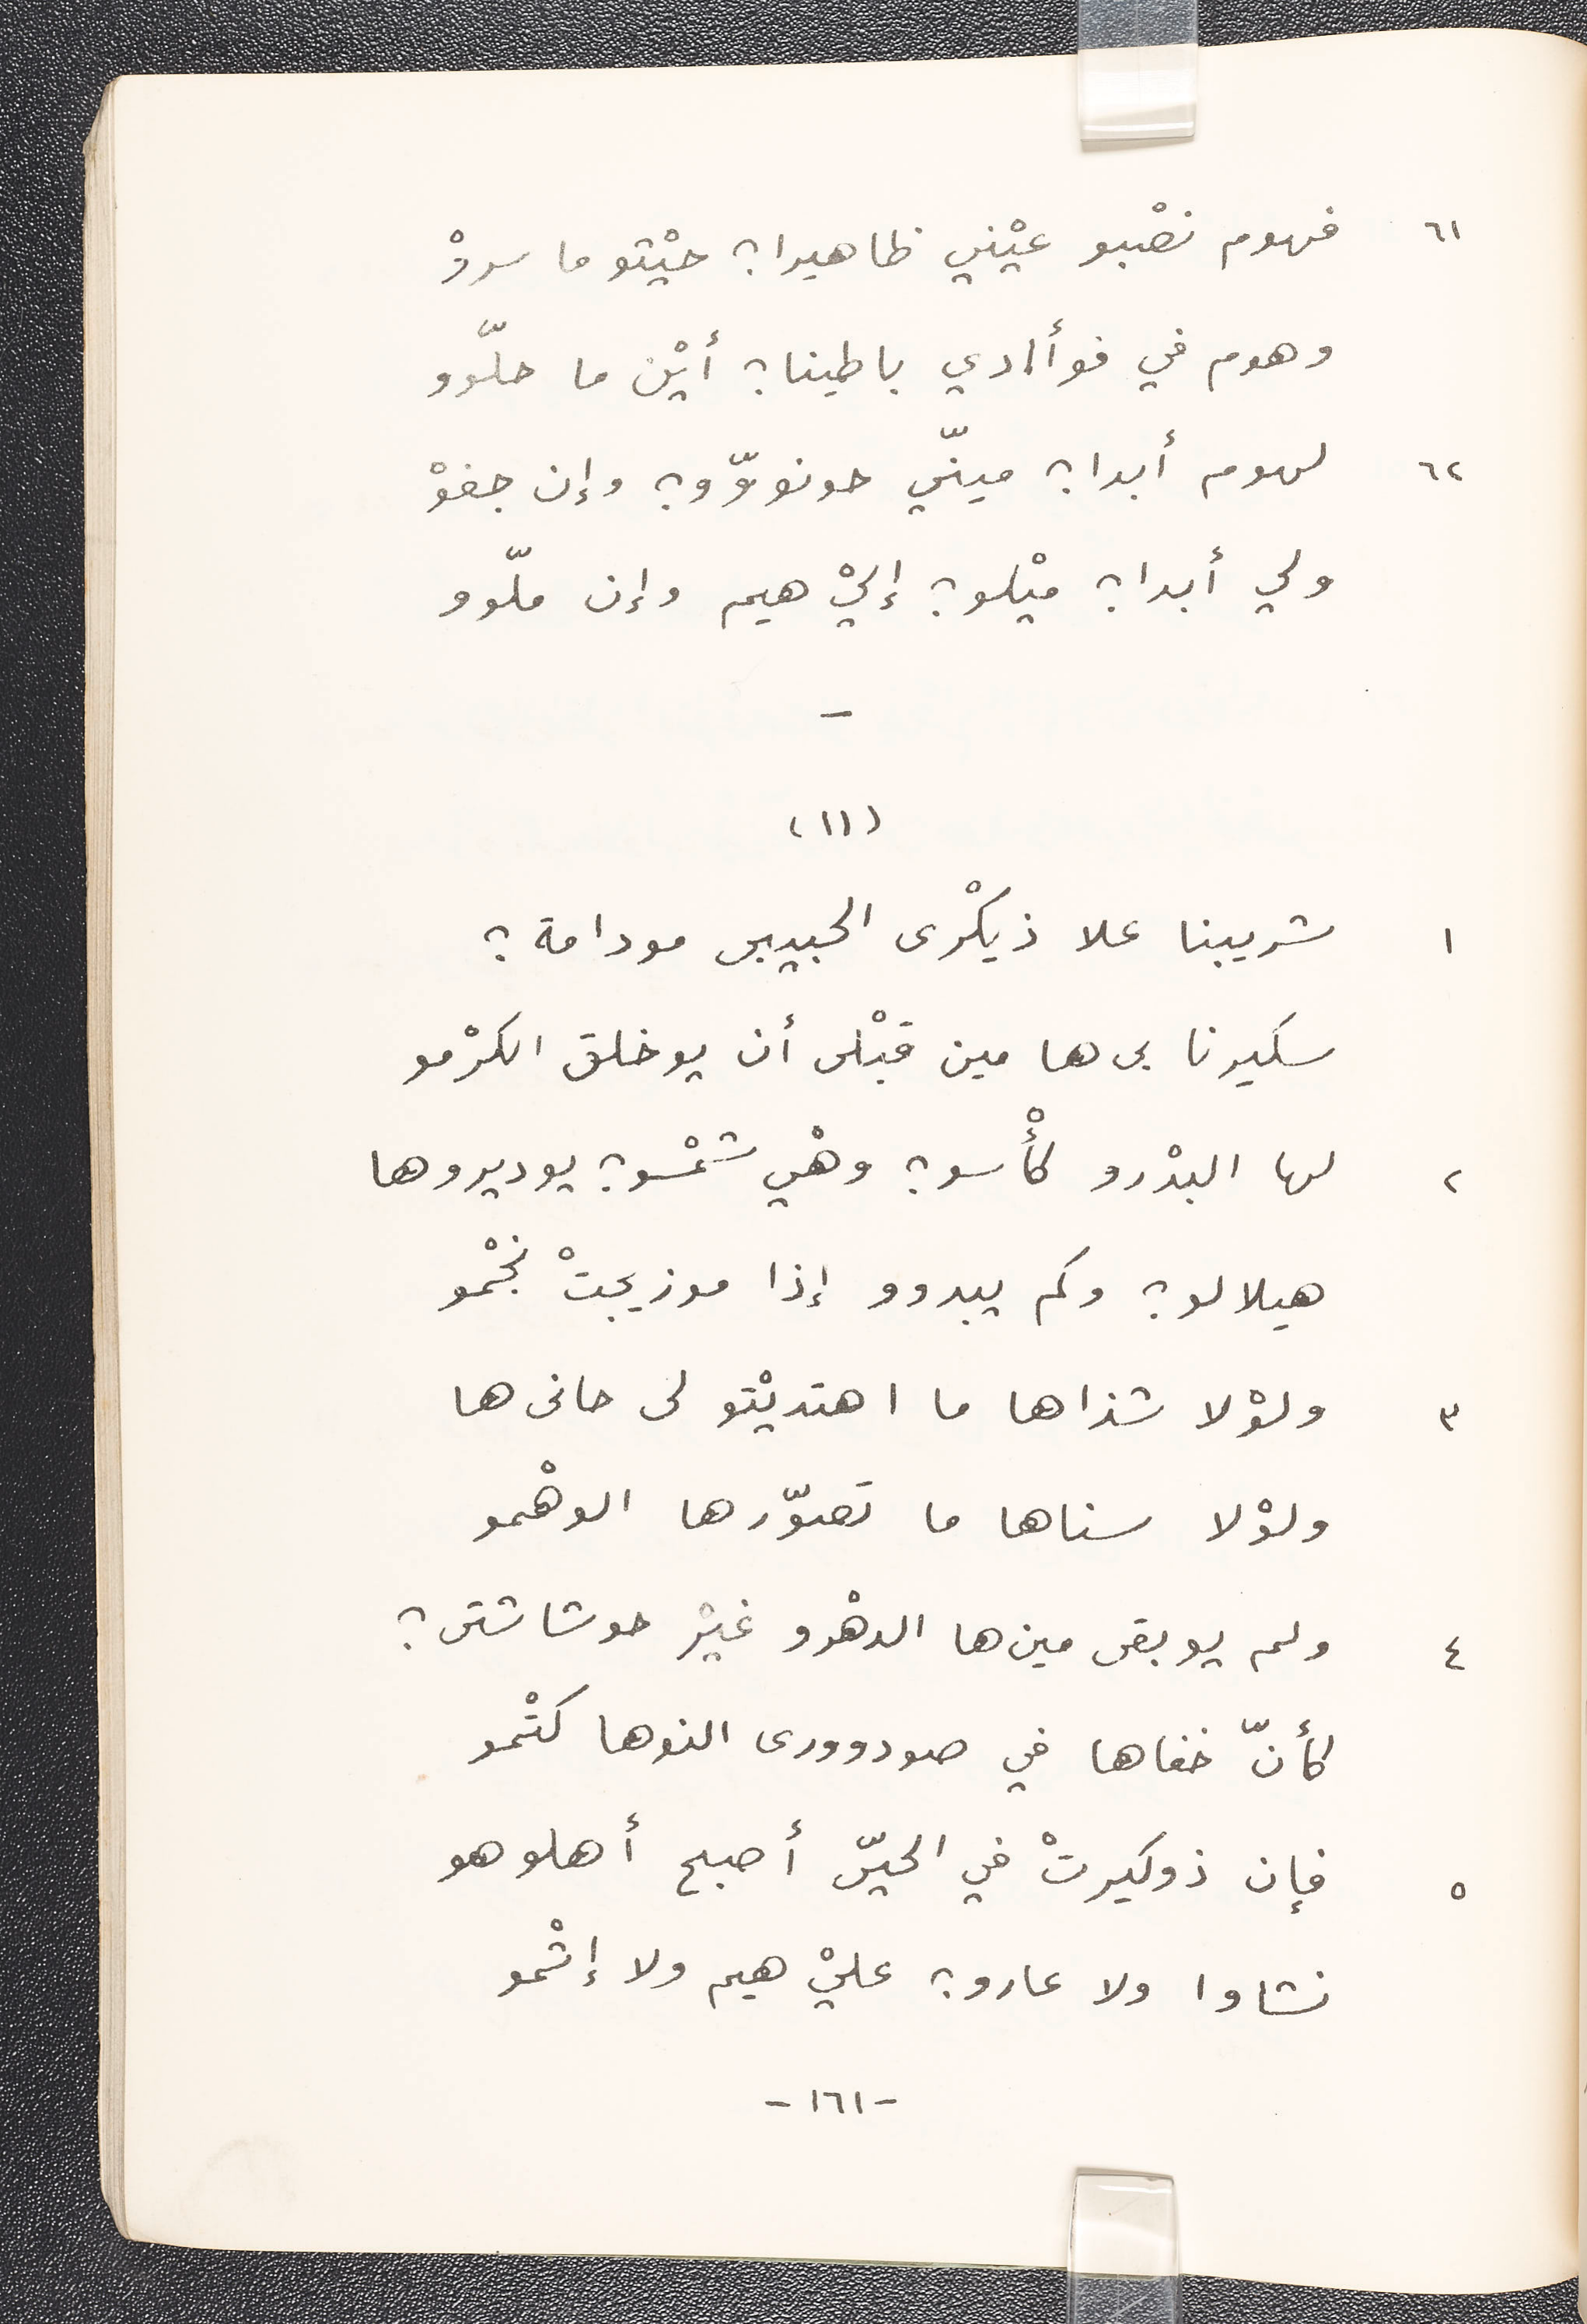 ٦١ فهوم نصْبو عيْني ظاهيرا؟ حيْثو ما سروْ
وهوم في فوأادي باطينا؟ أيْن ما حلّوو
٦٢ لهوم أبدا؟ مينّي حونووّو؟ وإن جفوْ
ولي أبدا؟ ميْلو؟ إليْ هيم وإن ملّوو
–
(١١)
١ شريبنا علا ذيكْرى الحبيبى مودامة؟
سكيرنا بى ها مين قبْلى أن يوخلق الكرْمو
٢ لها البدْرو كأْسو؟ وهْي شمْسو؟ يوديروها
هيلالو؟ وكم يبدوو إذا موزيجتْ نجْمو
٣ ولوْلا شذاها ما اهتديْتو لى حانى ها
ولوْلا سناها ما تصوّرها الوهْمو
٤ ولم يوبقى مين ها الدهْرو غيْر حوشاشتى؟
كأنّ خفاها في صودوورى النوها كتْمو
٥ فإن ذوكيرتْ في الحيّى أصبح أهلوهو
نشاوا ولا عارو؟ عليْ هيم ولا إثْمو
-١٦١-